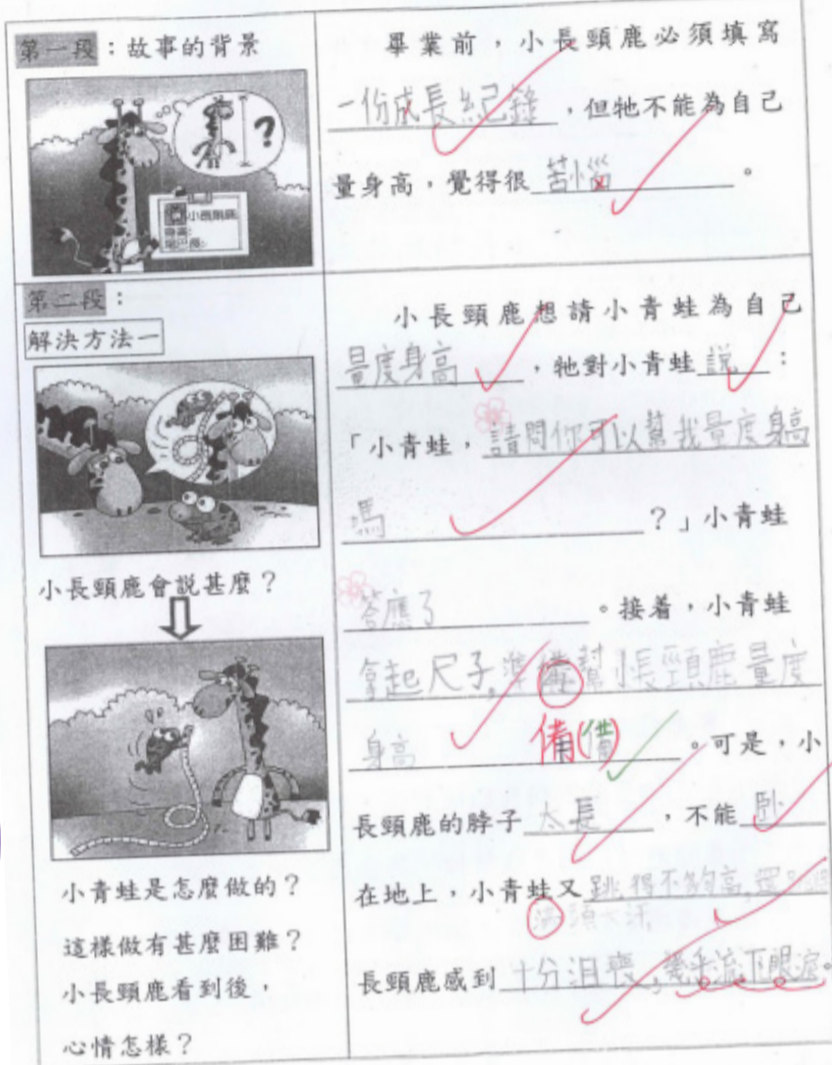 第一段：故事的背景
小長頸鹿
身高：
畢業前，小長頸鹿必須填寫
一份成長紀錄，但牠不能為自己
量身高，覺得很苦惱。
第二段：
解決方法一
小長頸鹿會説甚麼？
小青蛙是怎麼做的？
這樣做有甚麼困難？
小長頸鹿看到後，
心情怎樣？
小長頸鹿想請小青蛙為自己
量度身高，牠對小青蛙説：
「小青蛙，請問你可以幫我量度身高
嗎？」小青蛙
答應了。接着，小青蛙
拿起尺子，準備幫小長頸鹿量度
身高。可是，小
備(備)
長頸鹿的脖子太長，不能卧
在地上，小青蛙又跳得不夠高，還
滿頭大汗
長頸鹿感到十分沮喪，幾乎流下眼淚。